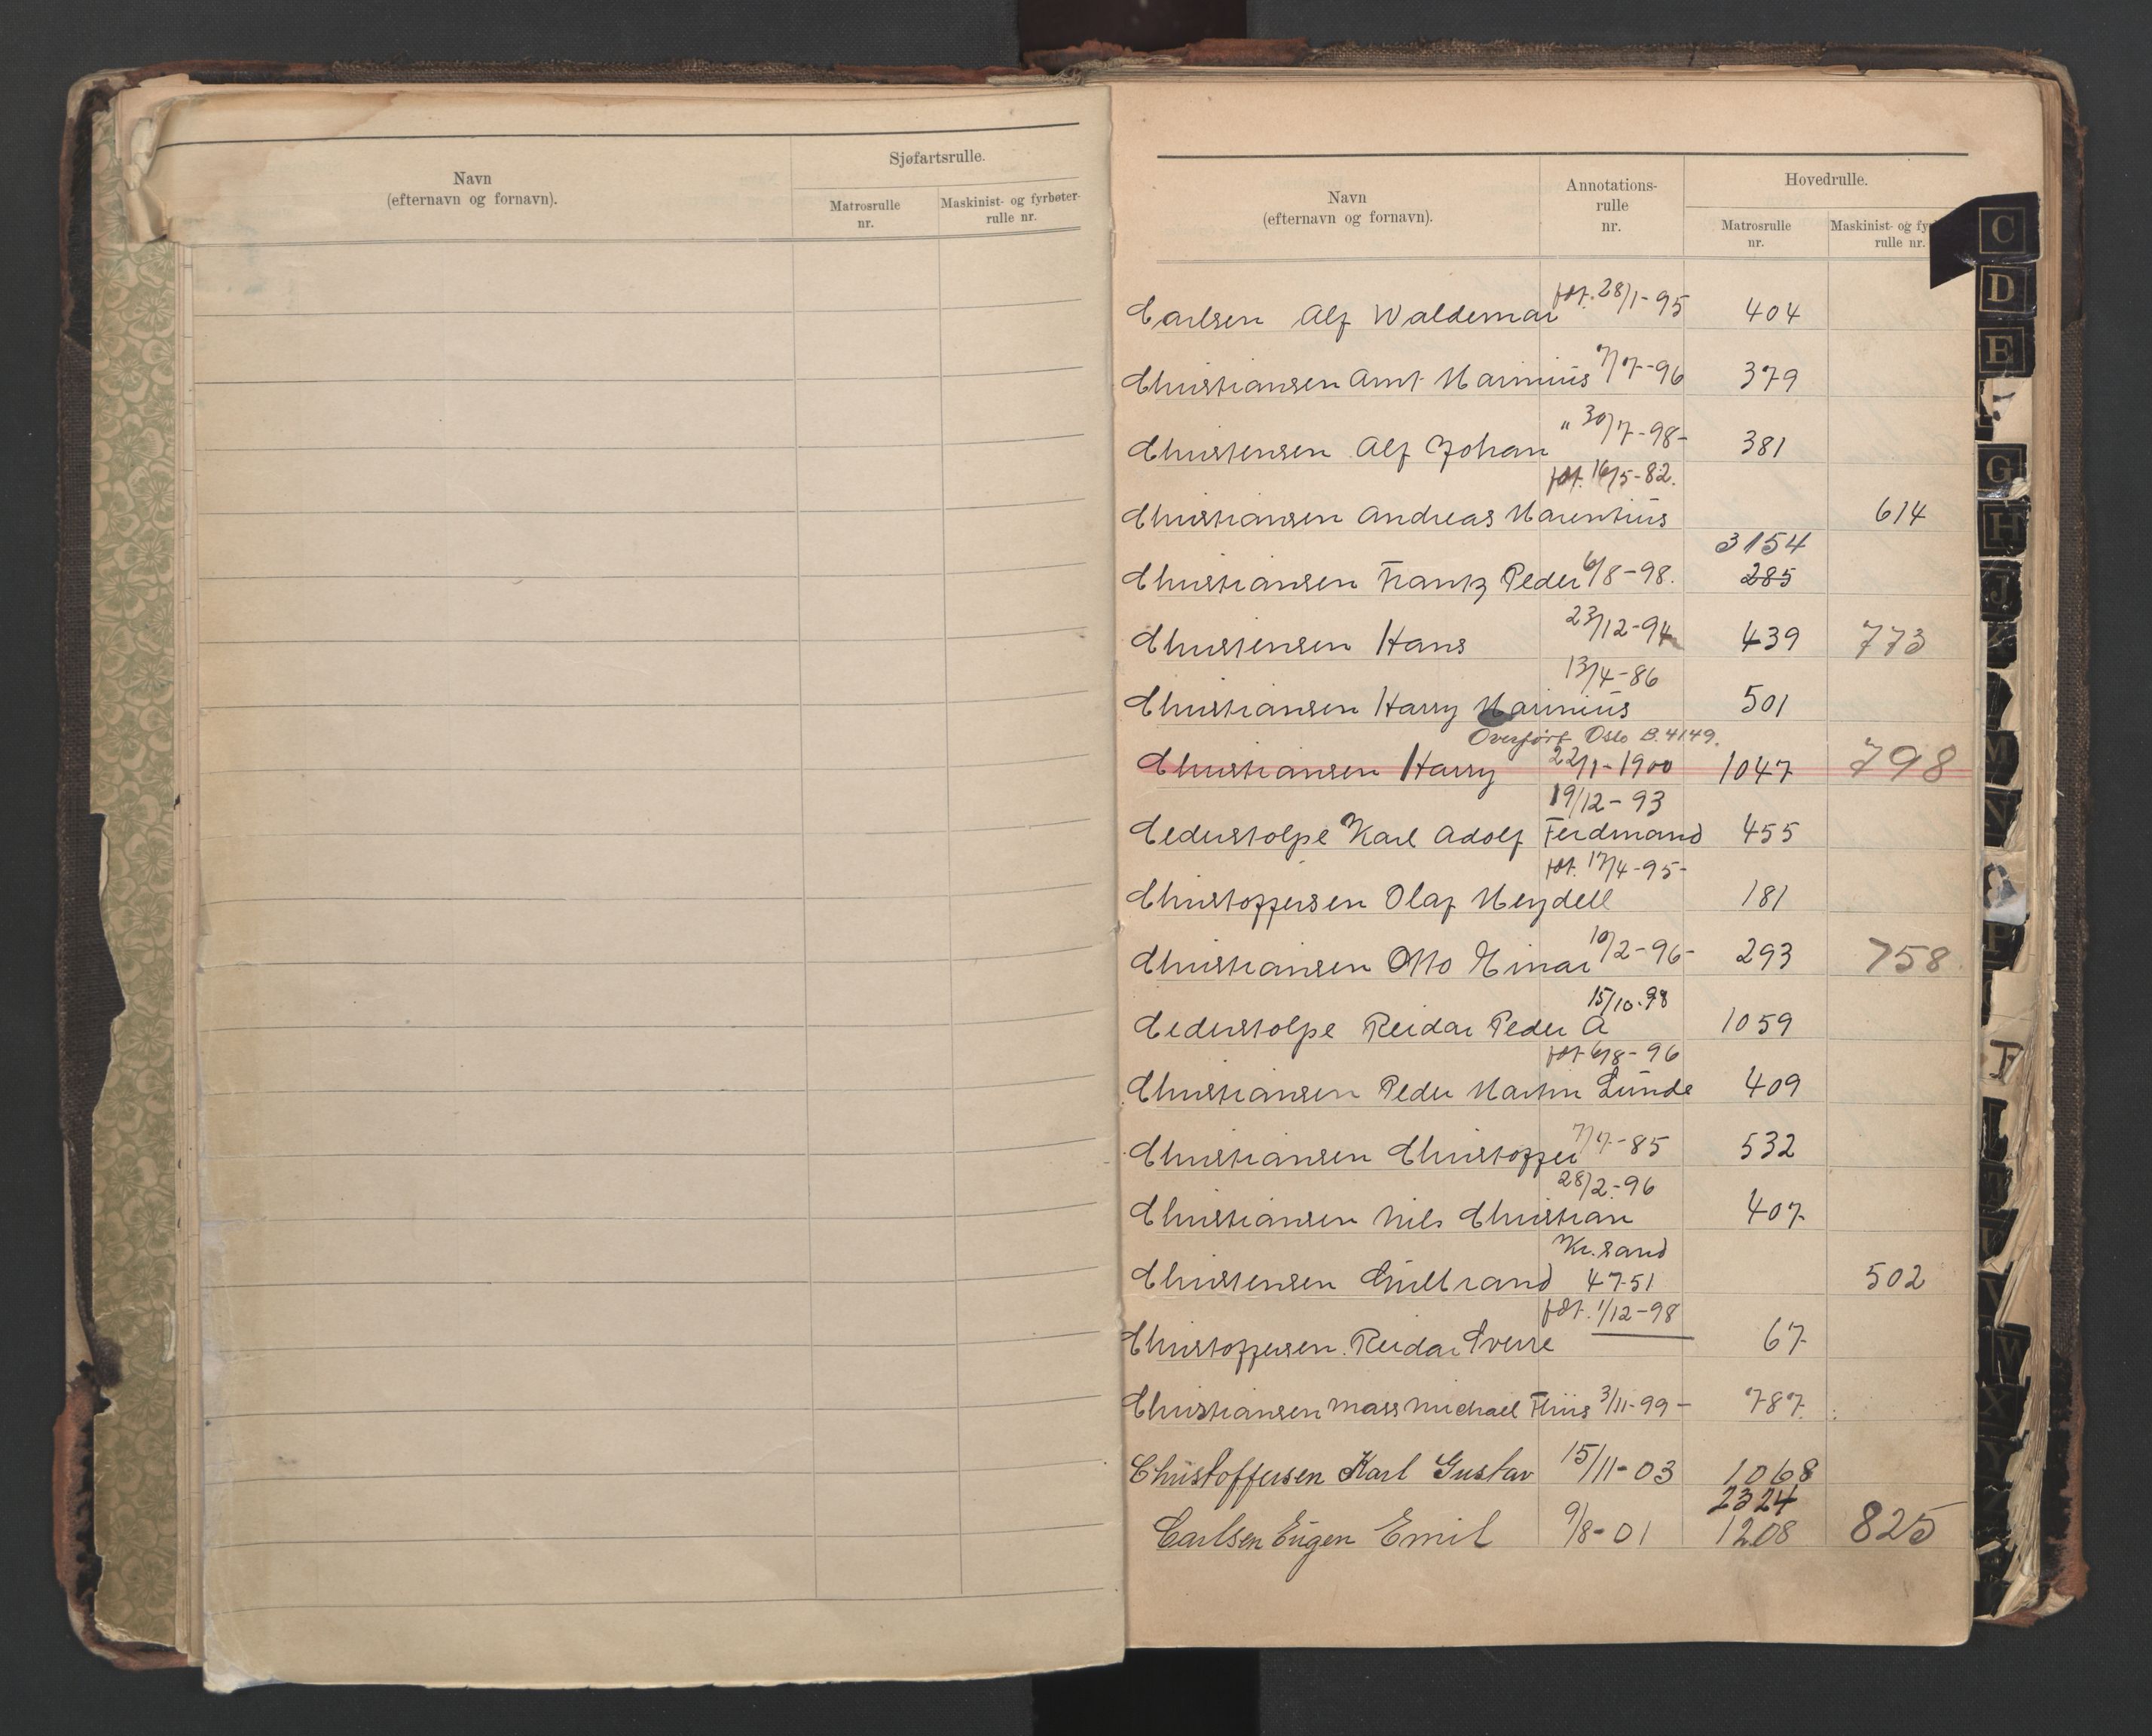 Navn
(efternavn og fornavn).
Sjøfartsrulle.
Matrosrulle
nr.
Maskinist- og fyrbøter-
rulle nr.
Navn
(efternavn og fornavn).
Annotations-
rulle
nr.
Hovedrulle.
Matrosrulle
nr.
Maskinist- og fy
rulle nr.
Carlsen Alf Waldemar født. 28/1-95 404
Christiansen Arnt Marinius 7/7-96 379
Christensen Alf Johan " 30/7-98- 381
født. 16/5-82.
Christiansen Andreas Marentius 614
3154
Christiansen Frantz Peder 6/8-98. 285
Christensen Hans 23/12-94 439 773
13/4-86
Christiansen Harry Marinius 501
Overført Oslo B.4149.
Christiansen Harry 22/1-1900 1047 798
19/12-93
Cederstolpe Karl Adolf Ferdinand 455
født. 17/4-95-
Christoffersen Olaf Meydell 181
Christiansen Otto Einar 10/2-96- 293 758
15/10-98
Cederstolpe Reidar Peder A 1059
født 6/8-96
Christiansen Peder Martin Lunde 409
Christiansen Christoffer 7/7-85 532
28/2-96
Christiansen Nils Christian 407
Kr.sand
Christensen Gulbrand 4751 502
født. 1/12-98
Christoffersen Reidar Sverre 67
Christiansen Mass Michael 3/11-99- 787
Christoffersen Karl Gustav 15/11-03 1068
2324
Carlsen Eugen Emil 9/8-01 1208 825
C
D
E
G
H
J
M
N
P
T
V
W
X
Y
Z